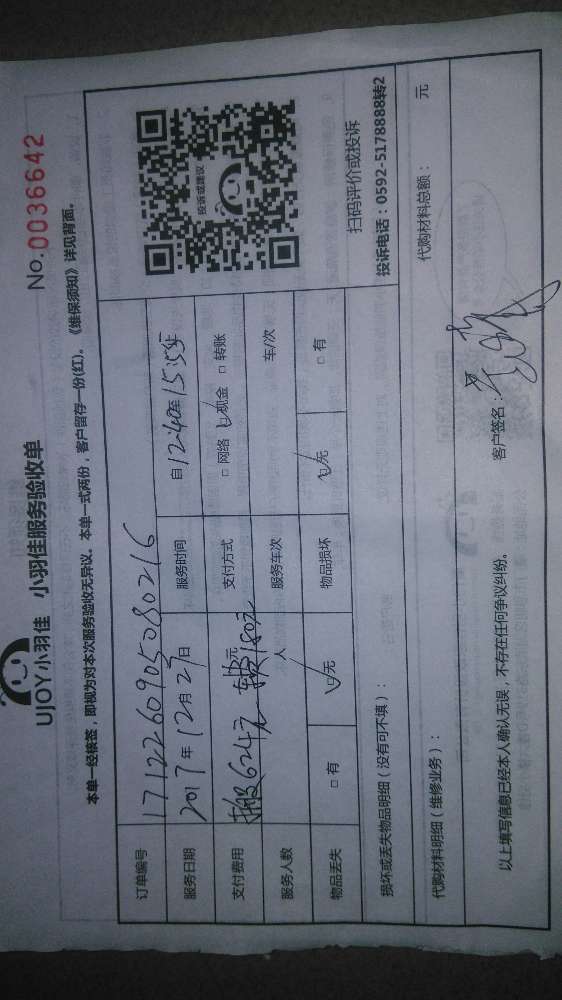 UJOY小羽佳 小羽佳服务验收单 No.0036642
本单一经核签，即视为对本次服务验收无异议。本单一式两份，客户留存一份(红)。《维保须知》详见背面。
订单编号 1712260905080216
服务日期 2017年12月2 日 服务时间 自12:40至15:55
支付费用 搬624元 元 支付方式 □网络 ☑现金 □转账
服务人数 人 服务车次 车/次
物品丢失 □有 ☑无 物品损坏 ☑无 □有
投诉或建议
扫码评价或投诉
投诉电话：0592-5178888转2
损坏或丢失物品明细（没有可不填）：
代购材料明细（维修业务）： 代购材料总额： 元
以上填写信息已经本人确认无误，不存在任何争议纠纷。 客户签名：